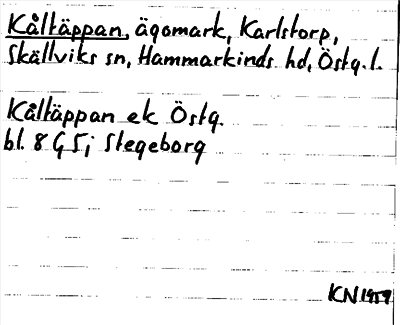 Kåltäppan, ägomark, Karlstorp,
Skällviks sn, Hammarkinds hd, Östg. l.
Kåltäppan ek Östg.
bl. 8 G 5 j Stegeborg
KN 1959